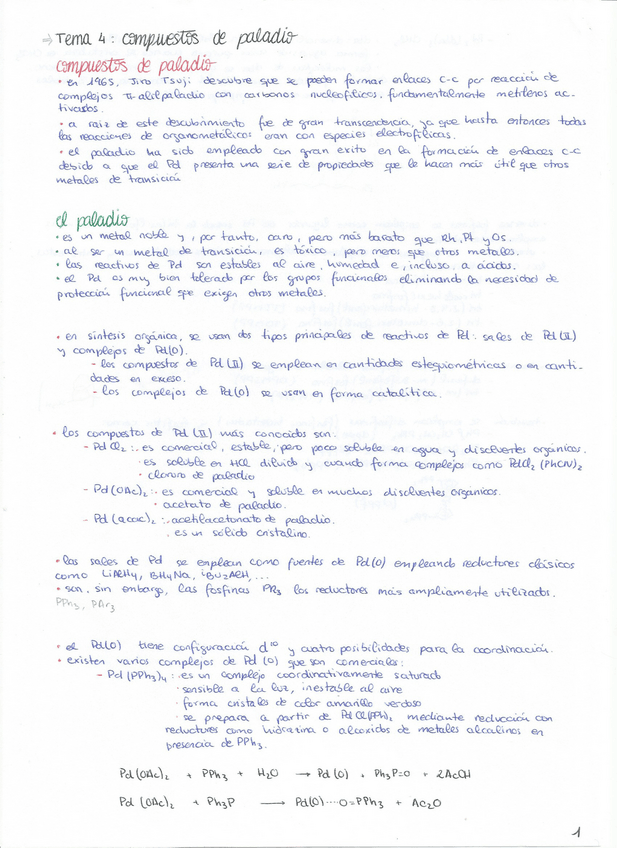 ⇒ Tema 4: compuestos de paladio
compuestos de paladio
• en 1965, Jiro Tsuji descubre que se pueden formar enlaces C-C por reacción de
complejos π-alilpaladio con carbonos nucleofílicos, fundamentalmente metilenos ac-
tivados.
• a raiz de este descubrimiento fue de gran transcendencia, ya que hasta entonces todas
las reacciones de organometálicos eran con especies electrofílicas.
• el paladio ha sido empleado con gran exito en la formación de enlaces C-C
debido a que el Pd presenta una serie de propiedades que le hacen más útil que otros
metales de transición
el paladio
• es un metal noble y, por tanto, caro, pero más barato que Rh, Pt y Os.
• al ser un metal de transición, es tóxico, pero menos que otros metales.
• las reactivos de Pd son estables al aire, humedad e, incluso, a ácidos.
• el Pd es muy bien tolerado por los grupos funcionales eliminando la necesidad de
protección funcional que exigen otros metales.
• en síntesis orgánica, se usan dos tipos principales de reactivos de Pd: sales de Pd(II)
y complejos de Pd(0).
- los compuestos de Pd(II) se emplean en cantidades estequiométricas o en canti-
dades en exceso.
- los complejos de Pd(0) se usan en forma catalítica.
• los compuestos de Pd(II) más conocidos son:
- PdCl2: · es comercial, estable, pero poco soluble en agua y disolventes orgánicos.
· es soluble en HCl diluido y cuando forma complejos como PdCl2(PhCN)2
· cloruro de paladio
- Pd(OAc)2: · es comercial y soluble en muchos disolventes orgánicos.
· acetato de paladio.
- Pd(acac)2: · acetilacetonato de paladio.
· es un sólido cristalino.
• las sales de Pd se emplean como fuentes de Pd(0) empleando reductores clásicos
como LiAlH4, BH4Na, iBu2AlH, ...
• son, sin embargo, las fosfinas PR3 los reductores más ampliamente utilizados.
PPh3, PAr3
• el Pd(0) tiene configuración d10 y cuatro posibilidades para la coordinación.
• existen varios complejos de Pd(0) que son comerciales:
- Pd(PPh3)4: · es un complejo coordinativamente saturado
· sensible a la luz, inestable al aire
· forma cristales de color amarillo verdoso
· se prepara a partir de PdCl2(PPh3)2 mediante reducción con
reductores como hidrazina o alcoxidos de metales alcalinos en
presencia de PPh3.
Pd(OAc)2 + PPh3 + H2O → Pd(0) + Ph3P=O + 2AcOH
Pd(OAc)2 + Ph3P → Pd(0)····O=PPh3 + Ac2O
1